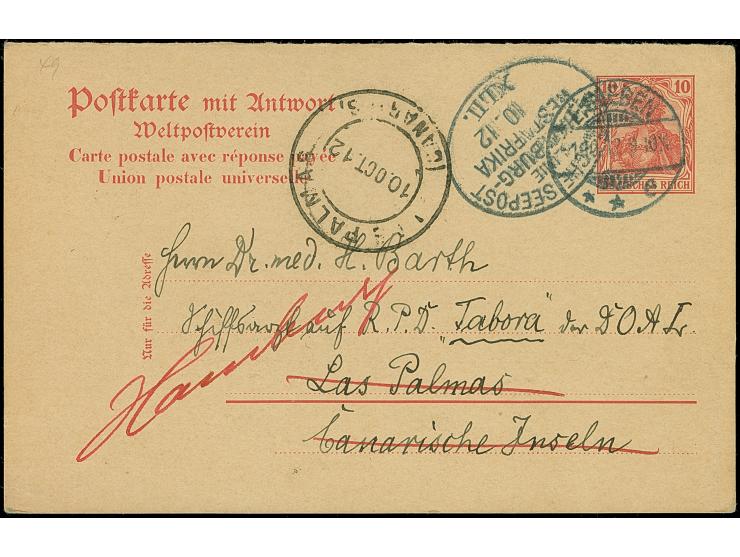 49
Postkarte mit Antwort
Weltpostverein
Carte postale avec réponse
Union postale universelle
10
REICH
LAS PALMAS
10.OCT.12
SEEPOST
WESTAFRIKA
10. 12
XLII.
Nur für die Adresse
Herrn Dr. med. H. Barth
Schiffsarzt auf R.P.D. "Tabora" der D O A L.
Las Palmas
Canarische Inseln
Hamburg